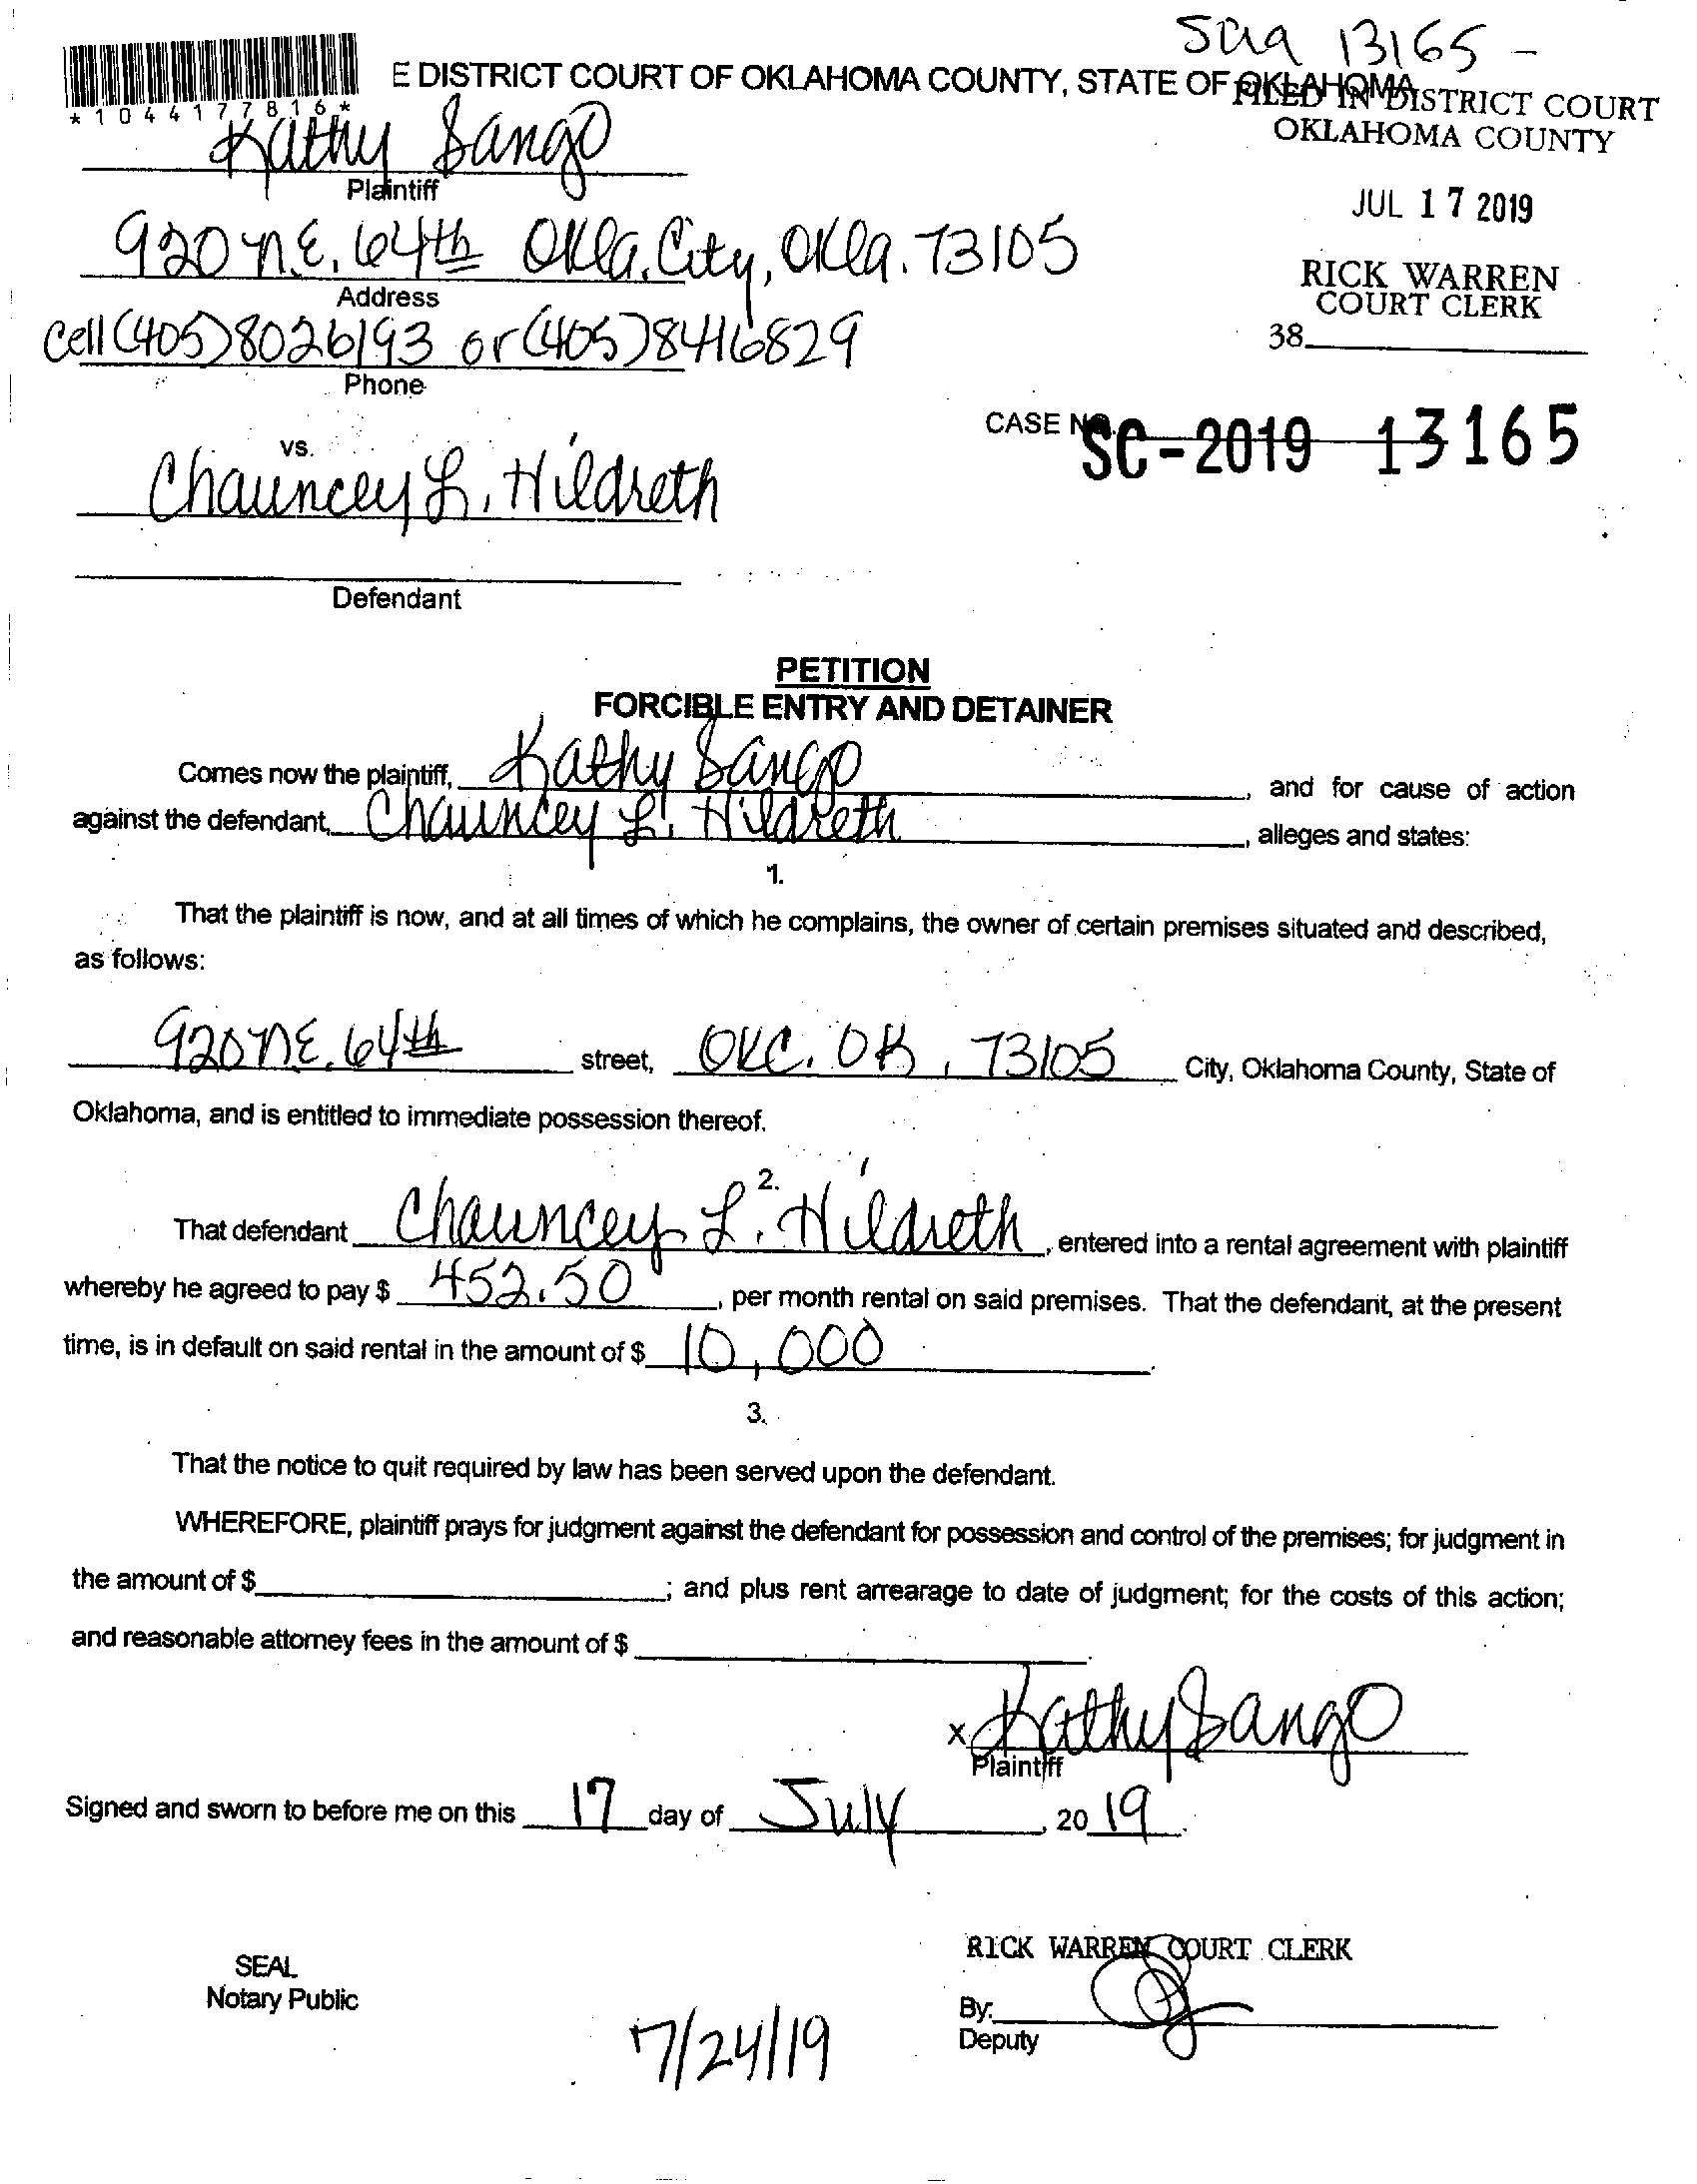 Sc19 13165 -
E DISTRICT COURT OF OKLAHOMA COUNTY, STATE OF OKLAHOMA
*1044177816*
FILED IN DISTRICT COURT
OKLAHOMA COUNTY
Kathy Sango
Plaintiff
JUL 17 2019
920 N.E. 64th Okla. City, Okla. 73105
Address
RICK WARREN
COURT CLERK
cell (405) 8026193 or (405) 8416829
38
Phone
CASE NO. SC-2019 13165
vs.
Chauncey L. Hildreth
Defendant
PETITION
FORCIBLE ENTRY AND DETAINER
Comes now the plaintiff, Kathy Sango, and for cause of action
against the defendant, Chauncey L. Hildreth, alleges and states:
1.
That the plaintiff is now, and at all times of which he complains, the owner of certain premises situated and described,
as follows:
920 N.E. 64th street, OKC. OK, 73105 City, Oklahoma County, State of
Oklahoma, and is entitled to immediate possession thereof.
2.
That defendant Chauncey L. Hildreth, entered into a rental agreement with plaintiff
whereby he agreed to pay $ 452.50, per month rental on said premises. That the defendant, at the present
time, is in default on said rental in the amount of $ 10,000.
3.
That the notice to quit required by law has been served upon the defendant.
WHEREFORE, plaintiff prays for judgment against the defendant for possession and control of the premises; for judgment in
the amount of $ ; and plus rent arrearage to date of judgment; for the costs of this action;
and reasonable attorney fees in the amount of $ .
x Kathy Sango
Plaintiff
Signed and sworn to before me on this 17 day of July, 20 19.
RICK WARREN COURT CLERK
SEAL
Notary Public
By:
Deputy
7/24/19